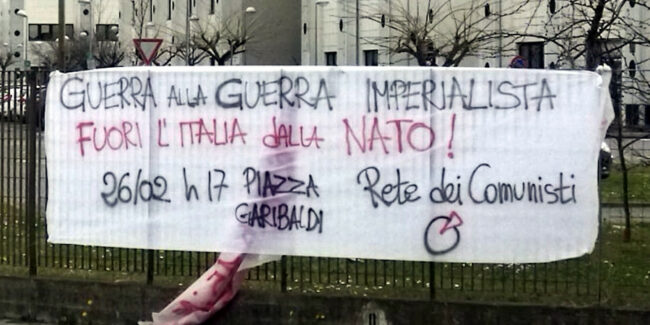 GUERRA ALLA GUERRA IMPERIALISTA
FUORI L'ITALIA dALLA NATO!
26/02 h 17 PIAZZA GARIBALDI
Rete dei Comunisti